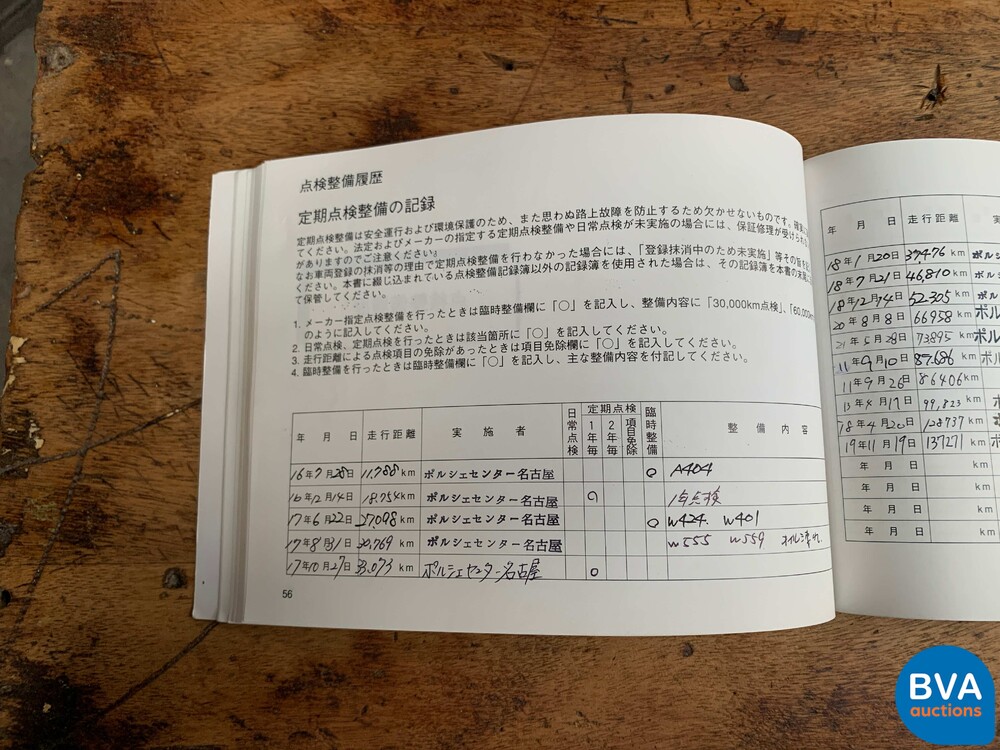 点検整備履歴
定期点検整備の記録
定期点検整備は安全運行および環境保護のため、また思わぬ路上故障を防止するため欠かせないものです。確実に
てください。法定およびメーカーの指定する定期点検整備や日常点検が未実施の場合には、保証修理が受けられな
がありますのでご注意ください。
なお車両登録の抹消等の理由で定期点検整備を行わなかった場合には、「登録抹消中のため未実施」等その旨を
ください。本書に綴じ込まれている点検整備記録簿以外の記録簿を使用された場合は、その記録簿を本書の末尾に
て保管してください。
1. メーカー指定点検整備を行ったときは臨時整備欄に「○」を記入し、整備内容に「30,000km点検」、「60,000km
のように記入してください。
2. 日常点検、定期点検を行ったときは該当箇所に「○」を記入してください。
3. 走行距離による点検項目の免除があったときは項目免除欄に「○」を記入してください。
4. 臨時整備を行ったときは臨時整備欄に「○」を記入し、主な整備内容を付記してください。
年 月 日 走行距離 実施者 日常点検 定期点検 1年毎 2年毎 項目免除 臨時整備 整備内容
16年7月28日 11,788km ポルシェセンター名古屋 ○ A404
16年12月14日 18,754km ポルシェセンター名古屋 ○ 1年点検
17年6月22日 27,098km ポルシェセンター名古屋 ○ W424. W401
17年8月31日 30,769km ポルシェセンター名古屋 W555 W559
17年10月27日 33,073km ポルシェセンター名古屋 ○
56
年 月 日 走行距離
18年1月20日 37476km ポル
18年7月21日 46,810km ポル
18年12月14日 52,305km ポル
20年8月8日 66958km ポル
21年5月28日 73895km ポル
11年9月10日 km ポル
11年9月26日 86406km
13年4月17日 99,823km
18年4月20日 128737km
19年11月19日 137271km
年 月 日 km
年 月 日 km
年 月 日 km
年 月 日 km
BVA
auctions